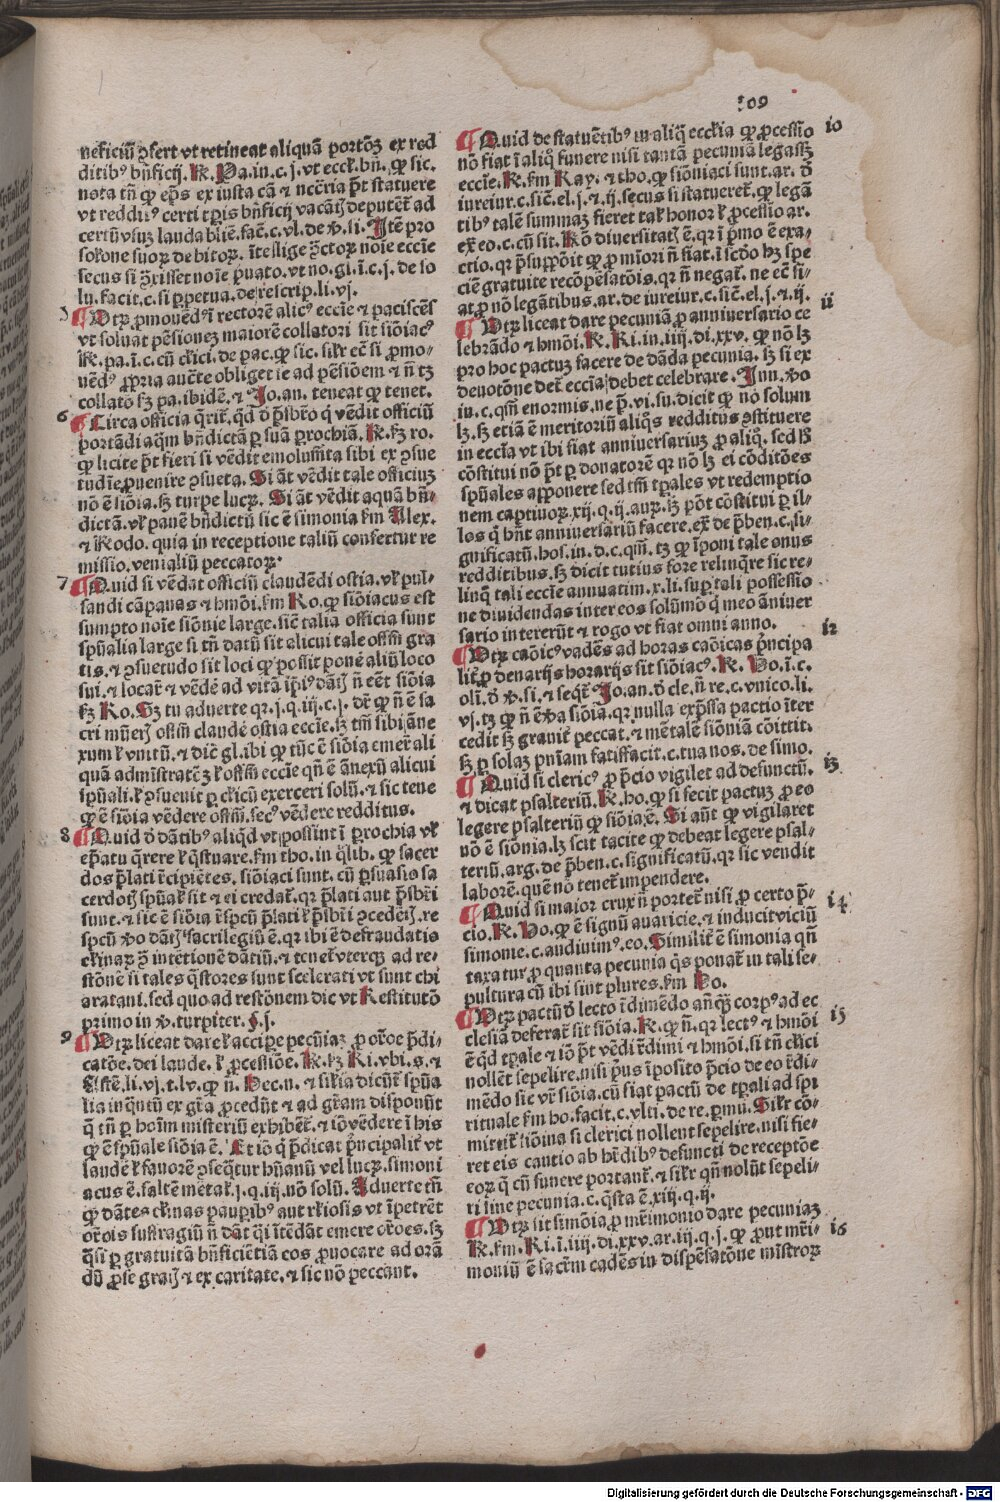 109
neficiū ꝯfert vt retineat aliquā portōꝫ ex red
ditibꝰ bñficij. R̃. Pa. in. c. j. vt eccł. bñ. ꝙ sic.
nota tñ ꝙ ep̄s ex iusta cā ⁊ ncēria p̄t statuere
vt redditꝰ certi tp̄is bñficij vacātꝭ deputet̄ ad
certū vsuꝫ laudabilē. fac̄. c. vl. de v̄. si. Itē pro
secus si ꝯ̄risset noīe p̄uato. vt no. gl. i. c. j. de so
lu. facit. c. si ꝑpetua. de rescrip. li. vj.
5
¶ Vtrꝫ ꝓmouēdꝰ ī rectorē alicꝰ eccīe ⁊ paciscēs
vt soluat pēsioneꝫ maiorē collatori sit siōiacꝰ
R̃. pa. ī. c. cū cl̄ici. de pac. ꝙ sic. silr̄ ec̄ si ꝓmo⸗
collato sꝫ pa. ibidē. ⁊ Jo. an. teneat ꝙ tenet.
6
¶ Circa officia q̄rit̄. qd̄ d̓ p̄sbr̄o q̓ vēdit officiū
portādi aq̄m bñdictā ꝑ suā ꝑrochiā. R̃. ẜꝫ ro.
ꝙ licite p̄t fieri si vēdit emolumēta sibi ex ꝯsue
tudīe ꝓuenire ꝯsueta. Si āt vēdit tale officiuꝫ
nō ē siōia. sꝫ turpe lucꝝ. Si āt vēdit aquā bñ⸗
dictā. vł panē bñdictū sic ē simonia ẜm Alex.
⁊ Rodo. quia in receptione taliū confertur re
missio. venialiū peccatoꝝ.
7
¶ Quid si vēdat officiū claudēdi ostia. vł pul⸗
sandi cāpanas ⁊ hmōi. ẜm Ro. ꝙ siōiacus est
sumpto noīe siōnie large. sic̄ talia officia sunt
spūalia large si tñ datū sit alicui tale offm̄ gra
tis. ⁊ ꝯsuetudo sit loci ꝙ possit ponē aliū loco
sui. ⁊ locar̄ ⁊ vēdē ad vitā ip̄iꝰ dātꝭ ñ eēt siōia
ẜꝫ Ro. Sꝫ tu aduerte qr. j. q. iij. c. j. dr̄ ꝙ ñ ē sa
cri mīstꝭ offm̄ claudē ostia eccīe. sꝫ tm̄ sibi āne
xum ł vnitū. ⁊ dic̄ gl. ibi ꝙ tūc ē siōia emer̄ ali
quā admīstratēꝫ ł offm̄ eccīe qñ ē ānexū alicui
spūali. ł ꝯsueuit ꝑ cl̄icū exerceri solū. ⁊ sic tene
ꝙ ē siōia vēdere offm̄. secꝰ vēdere redditus.
8
¶ Quid d̓ dātibꝰ aliqd̄ vt possint ī ꝑrochia vł
ep̄atu q̄rere ł q̄stuare. ẜm tho. in q̄lib. ꝙ sacer
dos p̄lati īcipiētes. siōiaci sunt. cū ꝑsuasio sa
cerdotꝭ spūał sit ⁊ ei credat̄. qr p̄lati aut p̄sbr̄i
sunt. ⁊ sic ē siōia īspcū p̄lati ł p̄sbr̄i ꝯcedētꝭ. re
spcū v̄o dātꝭ sacrilegiū ē. qr ibi ē defraudatio
stōnē si tales q̄stores sunt scelerati vt sunt chi
aratani. sed quo ad restōnem dic vt Restitutō
primo in v̄. turpiter. §. j.
9
¶ Vtrꝫ liceat dare ł accipe pecūiaꝫ ꝓ or̄oe p̄di⸗
catōe. dei laude. ł ꝓcessiōe. R̃. ẜꝫ Ri. vbi. s. ⁊
lia inq̄ntū ex gr̄a ꝓcedūt ⁊ ad gr̄am disponūt
q̄ tn̄ ꝑ hoīm misteriū exhibēt̄. ⁊ iō vēdere ī his
ꝙ ē spūale siōia ē. Et iō q̓ p̄dicat p̄ncipalit̄ vt
laudē ł fauorē ꝯseq̄tur hūanū vel lucꝝ. simoni
acus ē. saltē mētał. j. q. iij. nō solū. Aduerte tñ
ꝙ dātes elīnas pauꝑibꝰ aut rl̄iosis vt īpetrēt
or̄ois suffragiū ñ dāt q̄i itēdāt emere or̄oes. sꝫ
q̄si ꝑ gratuitā bñficiētiā eos ꝓuocare ad orā
dū ꝓ se gratꝭ ⁊ ex caritate. ⁊ sic nō peccant.
10
¶ Quid de statuētibꝰ in aliq̄ eccl̄ia ꝙ ꝓcessio
nō fiat ī aliq̊ funere nisi tantā pecuniā legassꝫ
eccīe. R̃. ẜm Ray. ⁊ tho. ꝙ siōniaci sunt. ar. d̓
iureiur. c. sic̄. el. j. ⁊. ij. secus si statueret̄. ꝙ legā
tibꝰ talē summaꝫ fieret talꝭ honor ł ꝓcessio ar.
ex̄ eo. c. cū sit. Rō diuersitatꝭ ē. qr ī p̄mo ē exa⸗
ctio. qr p̄suppōit ꝙ ꝓ miori ñ fiat. ī scd̄o hꝫ spe
ciē gratuite recōpēsatōis. qr ñ negat̄. ne ec̄ si⸗
at ꝓ nō legātibus. ar. de iureiur. c. sic̄. el. j. ⁊. ij.
11
¶ Vtrꝫ liceat dare pecuniā ꝓ anniuersario ce
lebrādo ⁊ hmōi. R̃. Ri. in. iiij. di. xxv. ꝙ nō lꝫ
pro hoc pactuꝫ facere de dāda pecunia. sꝫ si ex
deuotōne det̄ eccīa debet celebrare. Inn. v̄o
in. c. qm̄ enormis. ne p̄. vi. su. dicit ꝙ nō solum
lꝫ. sꝫ etiā ē meritoriū aliq̊s redditus ꝯstituere
in eccīa vt ibi fiat anniuersariuꝫ ꝓ aliq̊. sed ꝫ
cōstitui nō p̄t ꝑ donatorē qr nō lꝫ ei cōditōes
spūales apponere sed tm̄ tp̄ales vt redemptio
nem captiuoꝝ. xij. q. ij. auꝝ. sꝫ pōt cōstitui ꝑ il⸗
los q̓ hñt anniuersariū facere. ex̄. de p̄ben. c. si⸗
gnificatū. hos. in. d. c. qm̄. tꝫ ꝙ īponi tale onus
redditibus. sꝫ dicit tutius fore relinq̄re sic re⸗
linq̄ tali eccīe annuatim. x. li. suꝑ tali possessio
ne diuidendas inter eos solūmō q̓ meo āniuer
sario intererūt ⁊ rogo vt fiat omni anno.
12
¶ Vtrꝫ caōicꝰ vadēs ad horas caōicas p̄ncipa
lit̄ ꝓ denarijs horarijs sit siōiacꝰ. R̃. Ho. ī. c.
oli. d̓ v̄. si. ⁊ seqt̄ Jo. an. d̓ cle. ñ re. c. vnico. li.
vj. tꝫ ꝙ ñ ē v̄a siōia. qr nulla exp̄ssa pactio īter
cedit sꝫ grauit̄ peccat. ⁊ mētalē siōniā cōittit.
sꝫ ꝑ solaꝫ pn̄iam satisfacit. c. tua nos. de simo.
13
¶ Quid si clericꝰ ꝓ p̄cio vigilet ad defunctū.
⁊ dicat psalteriū. R̃. ho. ꝙ si fecit pactuꝫ ꝓ eo
legere psalteriū ꝙ siōia ē. Si aūt ꝙ vigilaret
nō ē siōnia. lꝫ scit tacite ꝙ debeat legere psal⸗
teriū. arg. de p̄ben. c. significatū. qr sic vendit
laborē. quē nō tenet̄ impendere.
14
¶ Quid si maior crux ñ portet̄ nisi ꝓ certo p̄⸗
cio. R̃. Ho. ꝙ ē signū auaricie. ⁊ inducit viciū
simonie. c. audiuimꝰ. eo. Similit̄ ē simonia qñ
taxatur ꝓ quanta pecunia q̓s ponat̄ in tali se⸗
pultura cū ibi sint plures. ẜm Ho.
15
¶ Vtrꝫ pactū d̓ lecto īdimēdo añq̄ꝫ corpꝰ ad ec
clesiā deferat̄ sit siōia. R̃. ꝙ ñ. qr lectꝰ ⁊ hmōi
ē qd̄ tp̄ale ⁊ iō p̄t vēdi r̄dimi ⁊ hmōi. si tñ cl̄ici
nollēt sepelire. nisi pͥus īposito p̄cio de eo r̄di⸗
mēdo sic vr̄ siōia. cū fiat pactū de tp̄ali ad spi
rituale ẜm ho. facit. c. vlti. de re. ꝑmu. Silr̄ cō⸗
mittit̄ siōina si clerici nollent sepelire. nisi fie⸗
ret eis cautio ab hr̄dibꝰ defuncti de receptōe
eoꝝ q̄ cū funere portant̄. ⁊ silr̄ qñ nolūt sepeli⸗
ri sine pecunia. c. q̄sta ē. xiij. q. ij.
16
¶ Vtrꝫ sit simōia ꝓ mr̄imonio dare pecuniaꝫ
R̃. ẜm. Ri. ī. iiij. di. xxv. ar. iij. q. j. ꝙ ꝓut mr̄i⸗
moniū ē sacr̄m cadēs in dispēsatōne mīstroꝝ
Digitalisierung gefördert durch die Deutsche Forschungsgemeinschaft - DFG